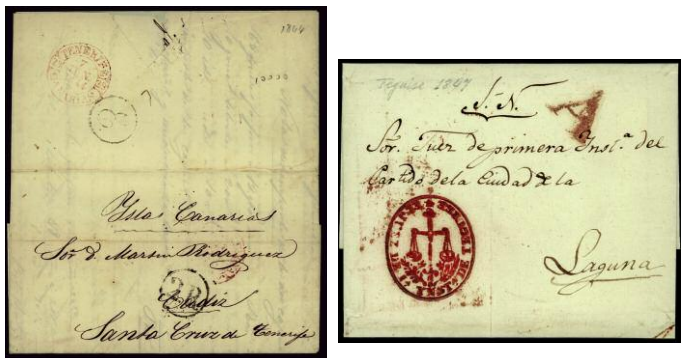 1844
10000
Isla Canarias
Sor. D. Martin Rodriguez
Cadiz
Santa Cruz de Tenerife
Teguise 1847
S. N.
Sor. Juez de primera Inst.a del
Partido de la Ciudad de la
Laguna